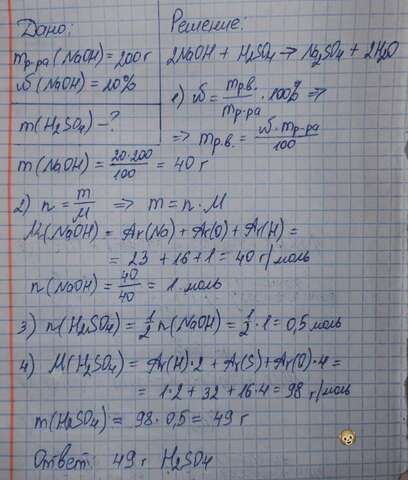 Дано:
Решение:
mр-ра (NaOH) = 200 г
ω (NaOH) = 20%
m (H2SO4) - ?
2NaOH + H2SO4 → Na2SO4 + 2H2O
1) ω = mр.в. / mр-ра · 100% ⇒
⇒ mр.в. = ω · mр-ра / 100
m (NaOH) = 20 · 200 / 100 = 40 г
2) n = m / M ⇒ m = n · M
M (NaOH) = Ar(Na) + Ar(O) + Ar(H) =
= 23 + 16 + 1 = 40 г/моль
n (NaOH) = 40 / 40 = 1 моль
3) n (H2SO4) = 1/2 n (NaOH) = 1/2 · 1 = 0,5 моль
4) M (H2SO4) = Ar(H) · 2 + Ar(S) + Ar(O) · 4 =
= 1 · 2 + 32 + 16 · 4 = 98 г/моль
m (H2SO4) = 98 · 0,5 = 49 г
Ответ: 49 г H2SO4